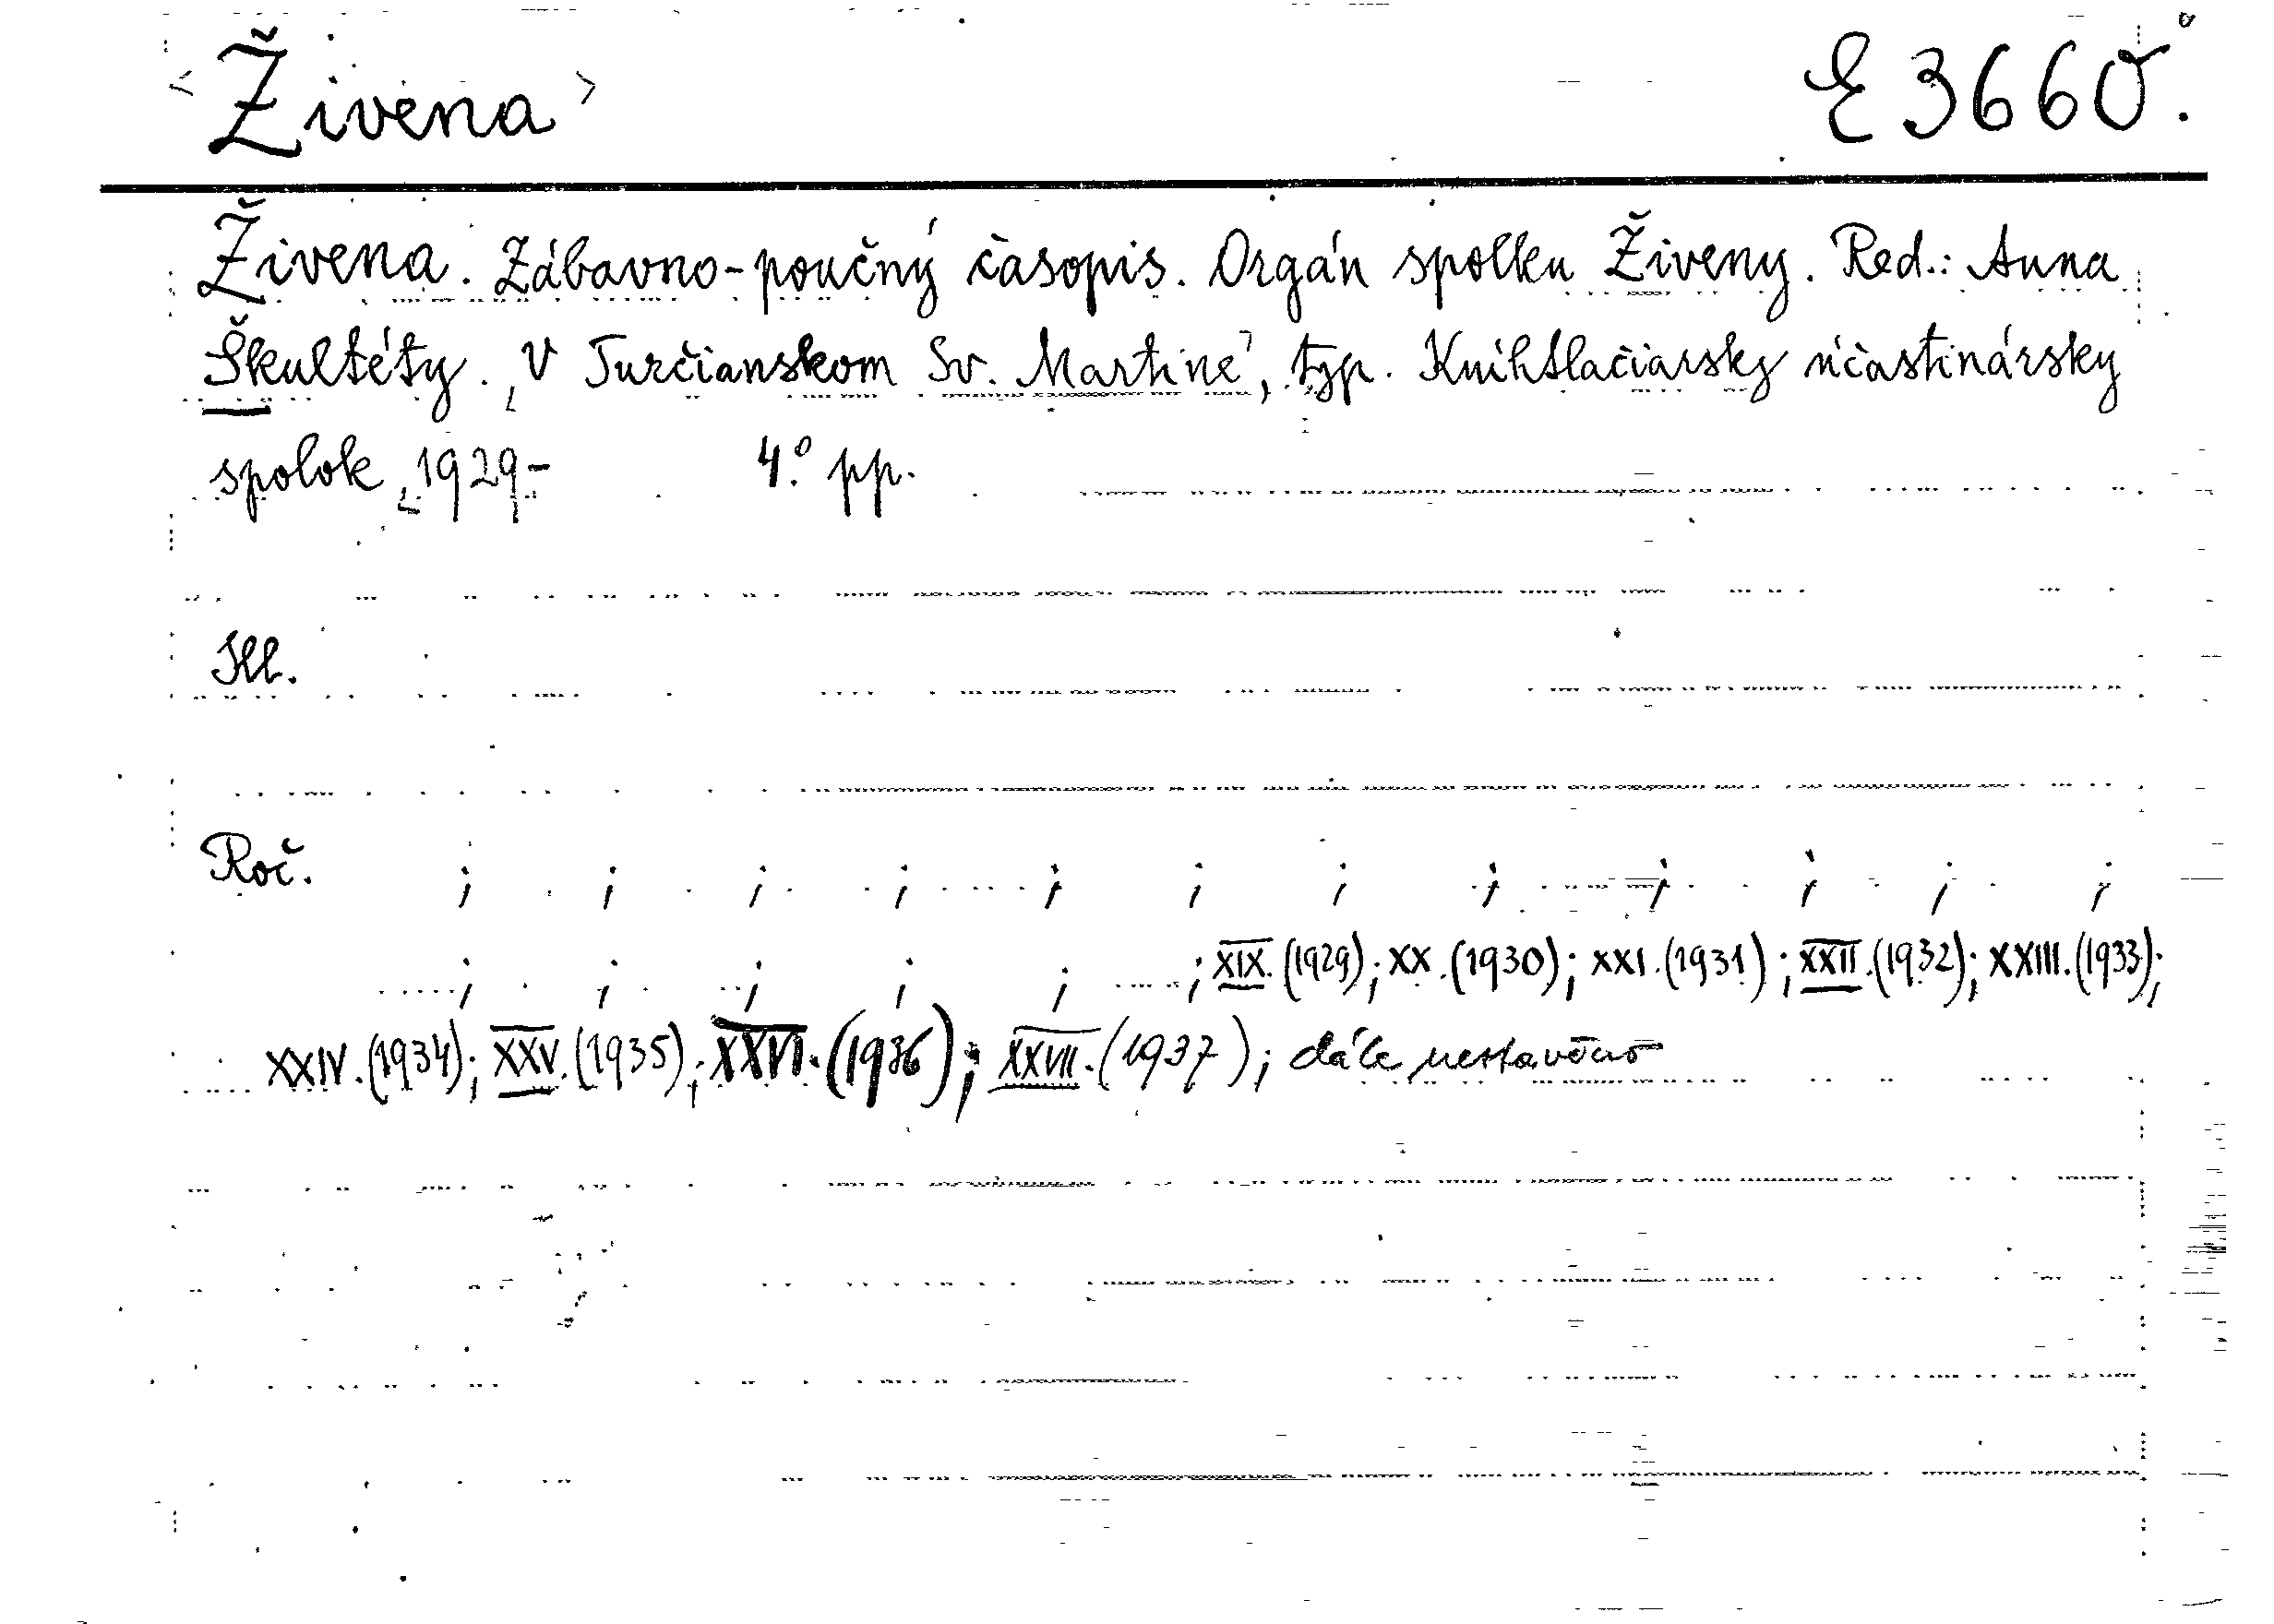 <Živena> E 3660.
Živena. Zábavno-poučný časopis. Orgán spolku Živeny. Red.: Anna
Škultéty. V Turčianskom Sv. Martine, typ. Knihtlačiarsky účastinársky
spolok, 1929- 4.º pp.
Ill.
Roč. ; ; ; ; ; ; ; ; ; ; ; ;
; ; ; ; ; ; XIX. (1929); XX. (1930); XXI. (1931); XXII. (1932); XXIII. (1933);
XXIV. (1934); XXV. (1935); XXVI. (1936); XXVII. (1937); dále nestavěno